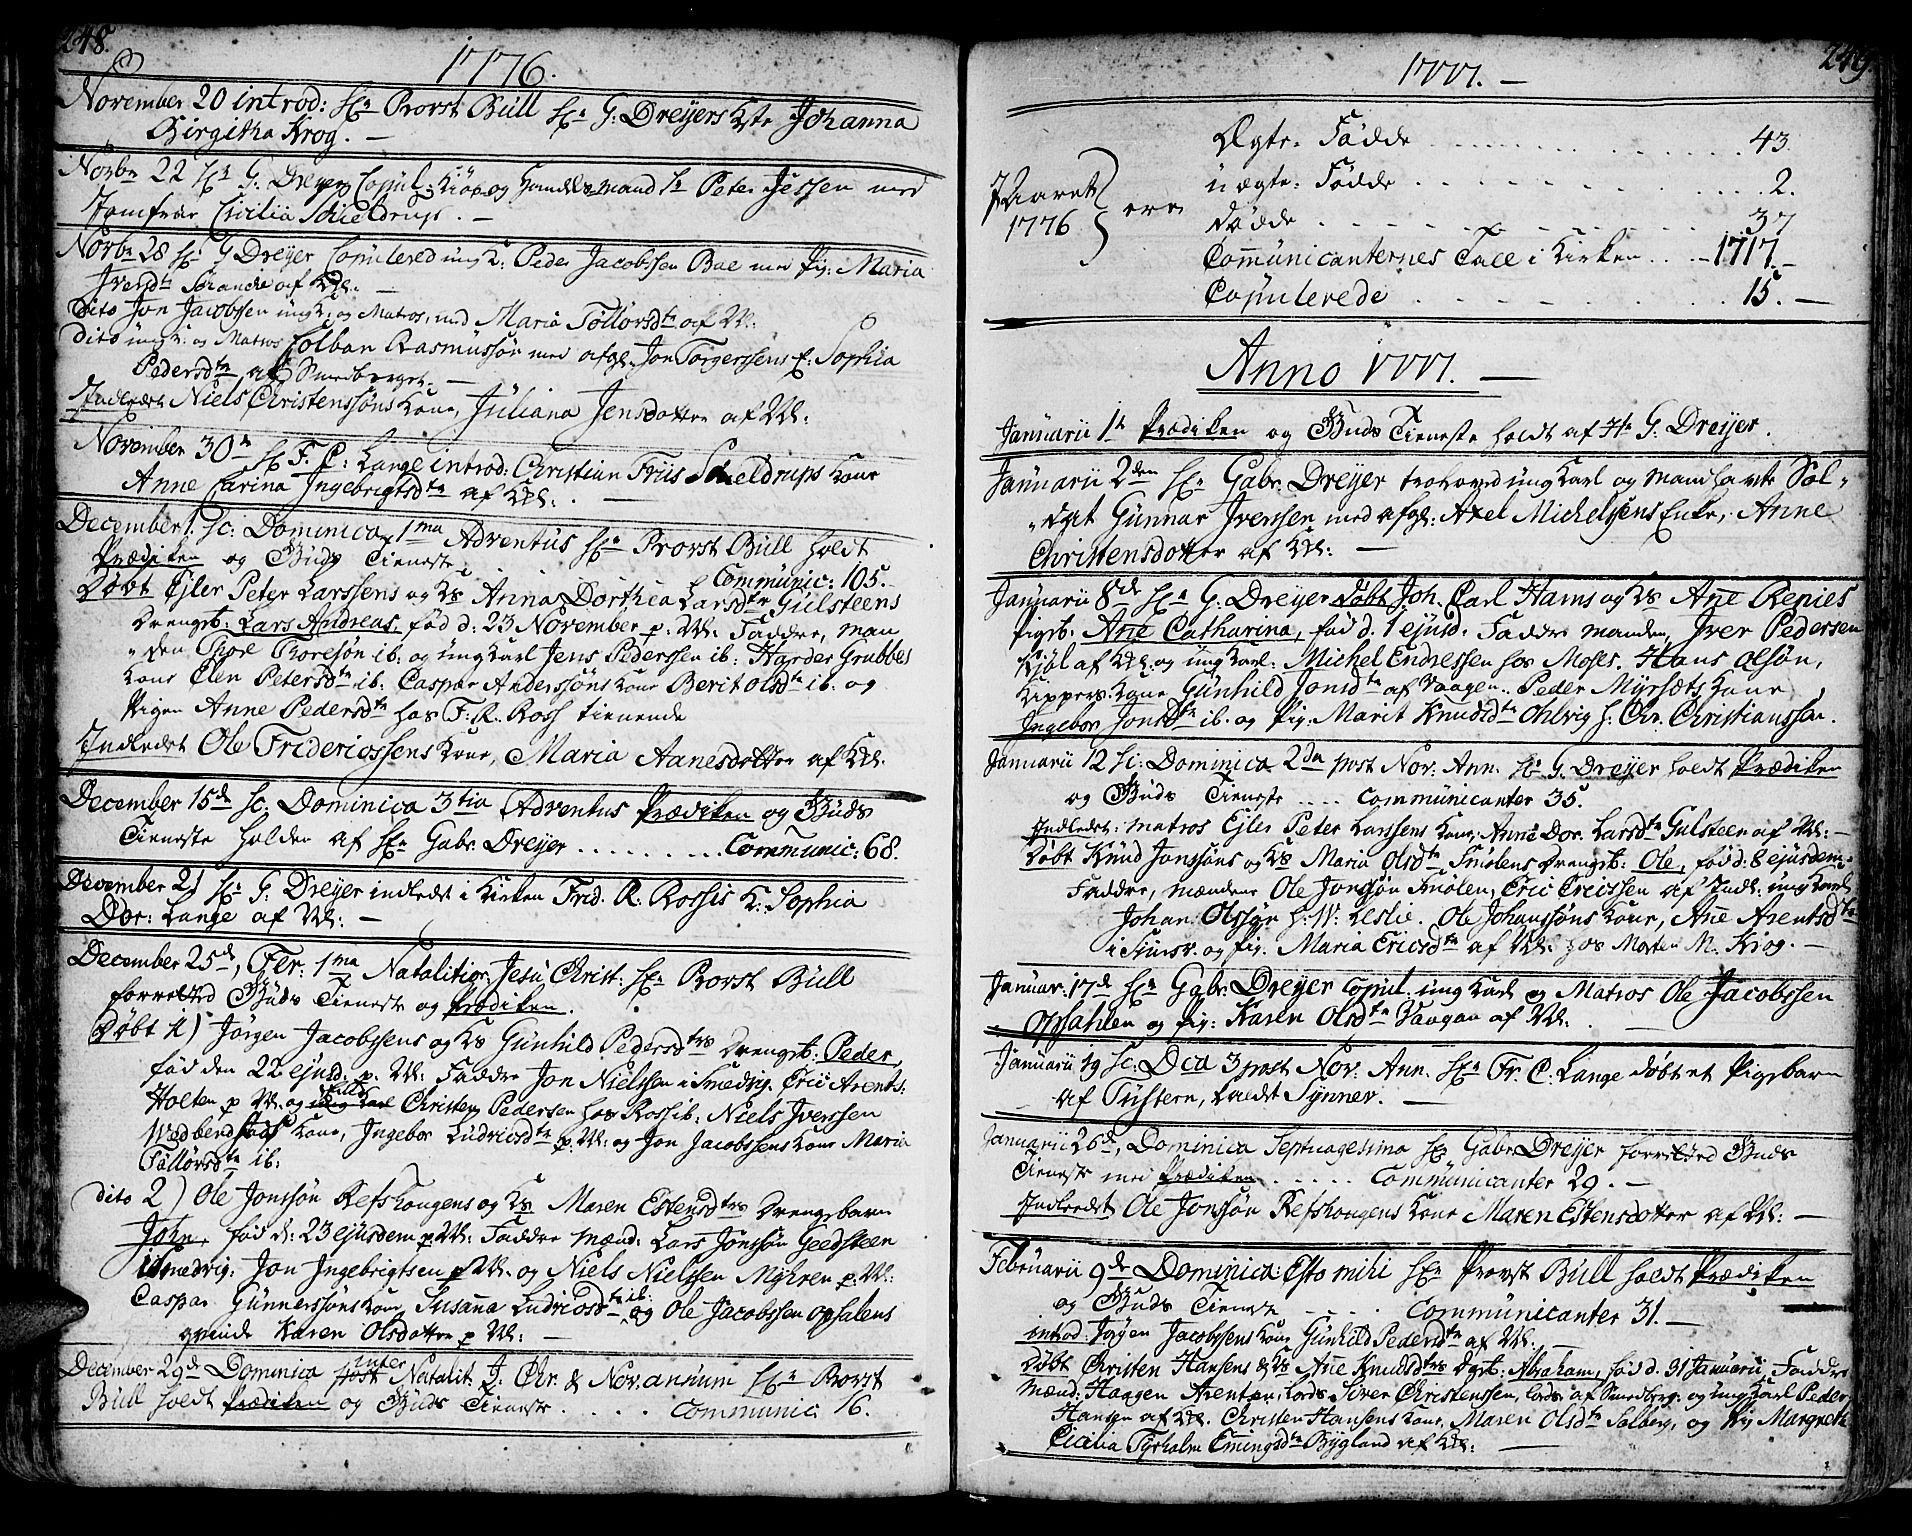 248.
1776.
November 20 introd: Hr Provst Bull Hr G: Dreyers Kste Johanna
Birgitha Krog. —
Novbr 22 Hr G: Dreyer Copul: Kiøb og Handelsmand Sr Peter Jessen med
Jomfrue Cicilia Schieldrup. —
Novbr 28 Hr G Dreyer Copulered ung K: Peder Jacobssen Bae med Pig: Maria
Iversdtr Strande af Kl: —
Dito Jon Jacobssen ung K: og Matros, med Maria Tollørsdtr af Kl:
dito ung K: og Matros Colban Rasmussøn med afgl. Jon Torgerssens E: Sophia
Pedersdtr af Smedberget. —
Indledt Niels Christenssøns Kone, Juliana Jensdotter af Kl:
November 30te Hr F. C: Lange introd: Christian Friis Schieldrups Kone
Anne Carina Ingebrigtsdtr af Kl: . —
December 1. sc: Dominica 1ma Adventus Hr Provst Bull holdt
Prædiken og Guds Tieneste. Communic: 105. —
Døbt Ejler Peter Larssens og Ks Anna Dorthea Larsdtr Gulsteens
Drengeb: Lars Andreas, fød d: 23 November p: Kl: Faddre, man
den Thore Toresøn ib: og ung Karl Jens Pederssen ib: Harder Grubbes
Kone Elen Petersdtr ib: Caspar Anderssøns Kone Berit Olsdtr ib: og
Pigen Anne Pedersdtr hos F: R. Ross tienende
Indledet Ole Fridericssens Kone, Maria Aanesdotter af Kl:
December 15de sc: Dominica 3tia Adventus Prædiken og Guds
Tieneste holden af Hr Gabr Dreyer . . . . . . . . Communic: 68.
December 21 Hr G: Dreyer indledt i Kirken Frid. R: Rossis K: Sophia
Dor: Lange af Kl: —
December 25de, Fer: 1ma Natalitior: Jesu Christ: Hr Provst Bull
forretted Guds Tieneste og Prædiken.
Døbt 1) Jørgen Jacobssens og Ks Gunhild Pedersdtrs Drengeb: Peder
fød den 22 ejusd: p: Kl: Faddre Jon Nielssen i Smedvig. Eric Arents:
Holten p Kl: og Christen Pedersen hos Ross ib: Niels Iverssen
Kone, Ingebor Ludvicsdtr p: Kl: og Jon Jacobssens Kone Maria
Tollørsdtr ib:
dito 2) Ole Jonssøn Refshougens og Ks Maren Estensdtrs Drengebarn
John, fød d: 23 ejusdem p: Kl: Faddre mænd: Lars Jonssøn Geedsteen
i Smedvig: Jon Ingebrigtsen p Kl: og Niels Nielssen Myhren p: Kl:
Caspar Gunnerssøns Kone Susana Ludvicsdtr ib: og Ole Jacobssen Opsalens
qvinde Karen Olsdotter p Kl: —
December 29de Dominica inter Natalit. J: Chr: & Nov: annum Hr Provst
Bull holdt Prædiken og Guds Tieneste . . . . Communic: 16.
249.
1777. —
Ægte: Fødde . . . . . . . . . . . 43.
J Aaret uægte: Fødde . . . . . . . . . . 2.
1776 ere Dødde . . . . . . . . . . . 37
Communicanternes Tall i Kirken . . — 1717. —
Copulerede . . . . . . . . . 15. —
Anno 1777. —
Januarii 1te Prædiken og Guds Tieneste holdt af Hr G: Dreyer.
Januarii 2den Hr Gabr: Dreyer troloved ung Karl og mandhafte Sol-
dat Gunnar Iverssen med afgl: Axel Michelssens Enke, Anne
Christensdotter af Kl: —
Januarii 8de Hr G: Dreyer døbt Joh. Carl Hams og Ks Ane Renies
Pigeb: Ane Catharina, fød d. 1 ejusd: Faddre manden, Iver Pedersen
Kjøl af Kl: og ung Karl: Michel Endressen hos Moses. Hans Olsøn,
Kippers Kone Gunhild Jonsdtr af Vaagen: Peder Myrsæts Kone
Ingebor Jonsdtr ib. og Pig: Marit Knudsdtr Ohlvig h: Chr: Christianssen.
Januarii 12 sc: Dominica 2da post Nov: Ann: Hr G: Dreyer holdt Prædiken
og Guds Tieneste . . . . Communicanter 35.
Indledet: matros Ejler Peter Larssens Kone, Anne Dor: Larsdtr Gulsteen af Kl: —
Døbt Knud Jonssøns og Ks Maria Olsdtr Smølens Drengeb: Ole, fød d: 8 ejusdem.
Faddre, mændene Ole Jonssøn Smølen, Eric Ericssen af Indl: ung Karl
Johan: Olssøn h: W: Leslie. Ole Johanssøns Kone, Ane Arentsdtr
og pig. Maria Ericsdtr af Kl: hos Morten M: Krog. —
Januar: 17de Hr Gabr: Dreyer Copul: ung Karl og Matros Ole Jacobssen
Opsahlen og pig: Karen Olsdtr Vaagan af Kl: —
Januarii 19 sc: Dca 3 post Nov: Ann: Hr Fr: C: Lange døbt et Pigebarn
af Tustern, kaldt Synnev. —
Januarii 26de, Dominica Septuagesima Hr Gabr Dreyer forretted Guds
Tieneste med Prædiken . . . . . Communicanter 29. —
Indledet Ole Jonssøn Refshougens Kone Maren Estensdotter af Kl: —
Februarii 9de Dominica: Esto mihi Hr Provst Bull holdt Prædiken
og Guds Tieneste . . . . . Communicanter 31. —
introd: Jørgen Jacobssens Kone Gunhild Pedersdtr af Kl: —
Døbt Christen Hansens & Ks Ane Knudsdtrs Dgeb: Abraham, fød d. 31 Januarii, Faddre
Mænd: Haagen Arentsøn: Lods Siver Christenssen, Lods af Smedberg: og ung Karl Peder
Hansen af Kl: Christen Hansens Kone, Maren Olsdtr Solberg, og Pig Margrete
Cicilia Tyrholm Emingsdtr Bygland af Kl: —